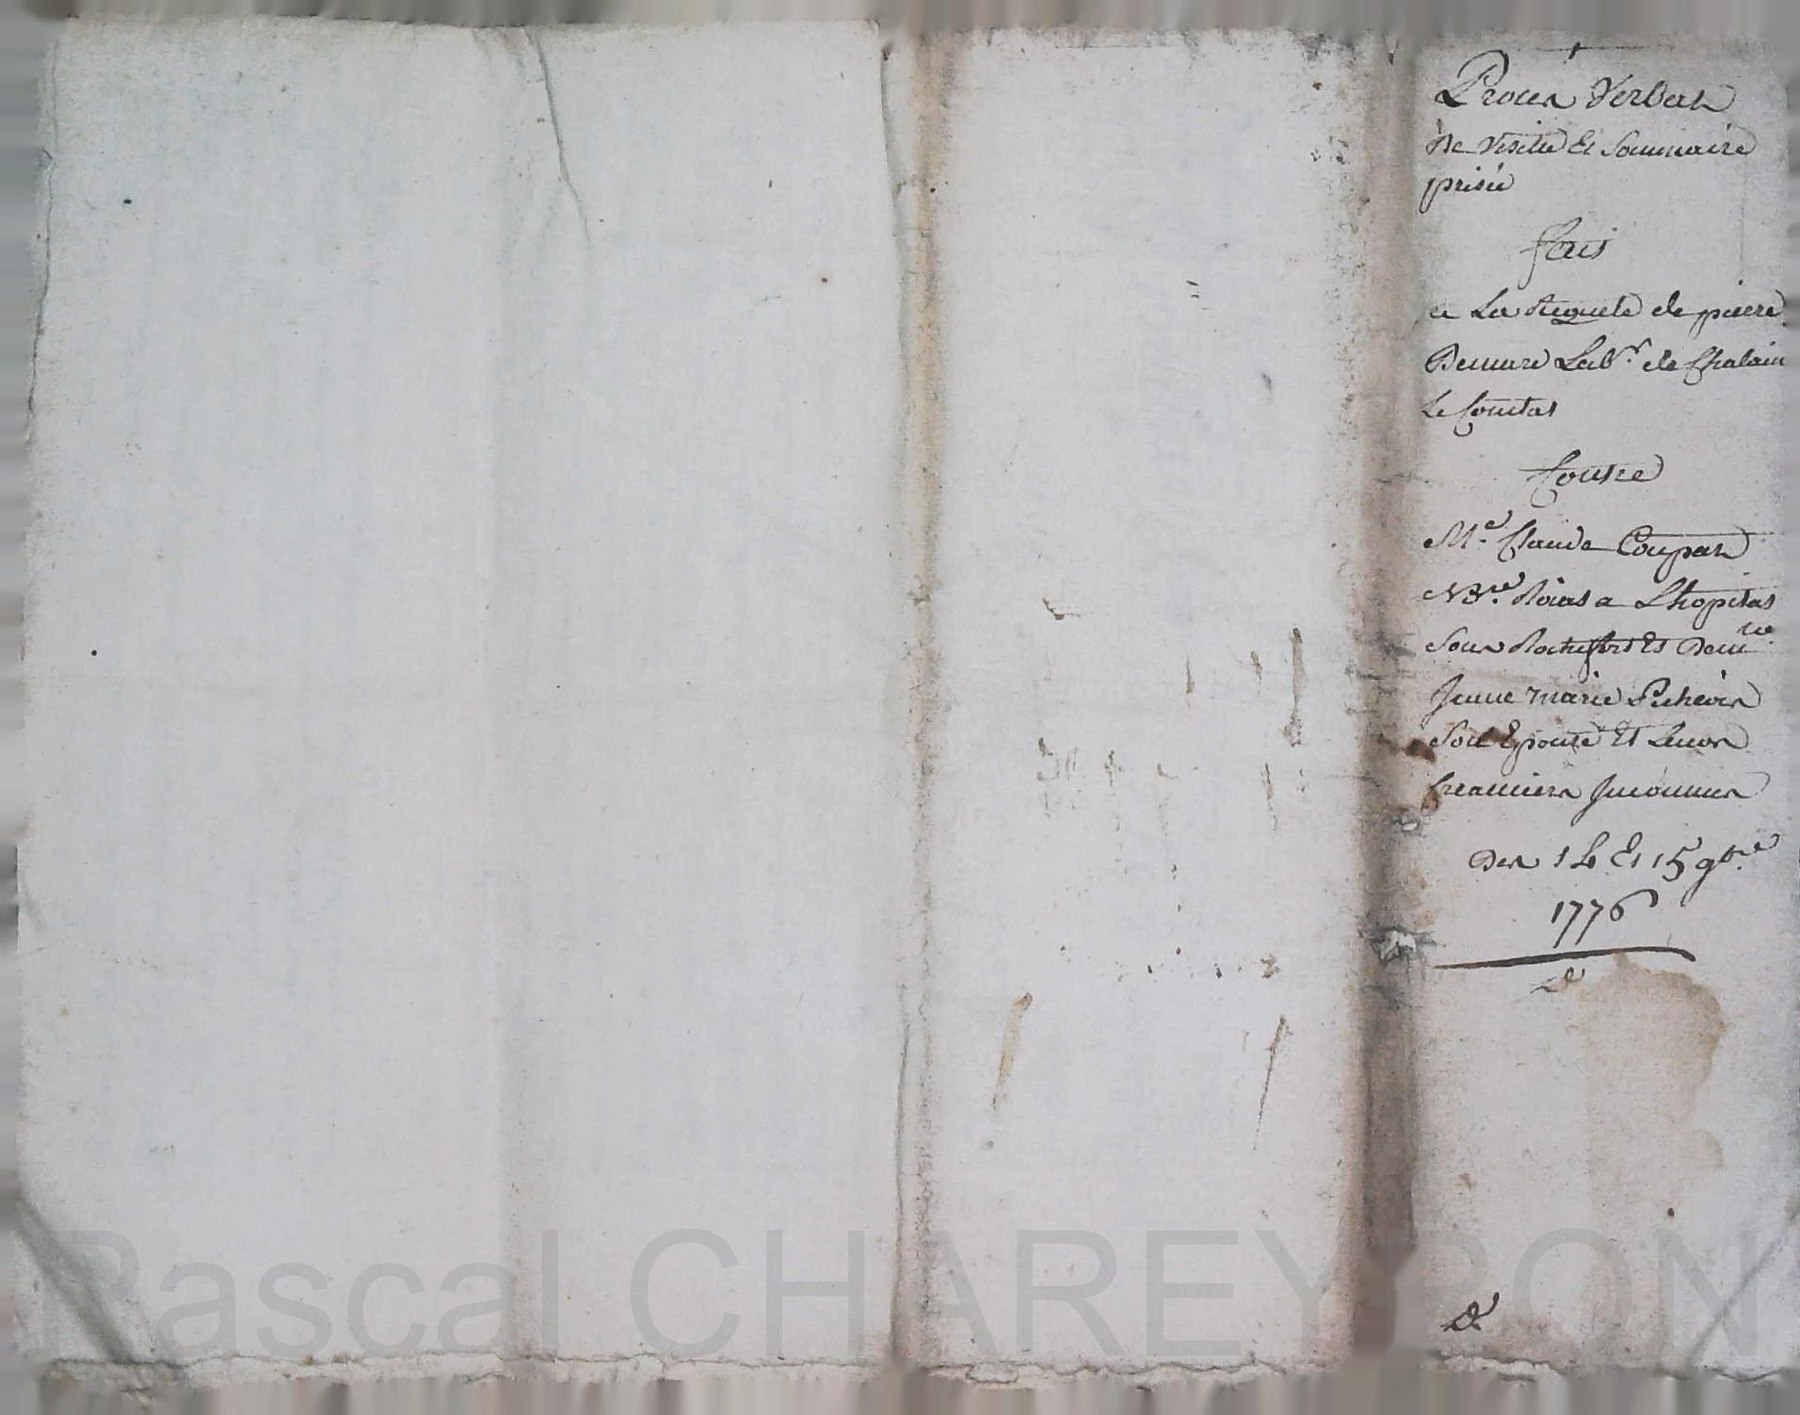 Proces Verbal
De Visitte Et Sommaire
prisée
fait
a La Requete de pierre
Demure Labr. de Chalain
Le Comtal
Contre
Me. Claude Coupat
Nre. Roial a Lhopital
Sous Rochefort Et Demlle.
Jeanne marie
Son Epouse Et Leurs
Creanciers Inconnus
Des 14 Et 15 9bre.
1776
Pascal CHAREYRON